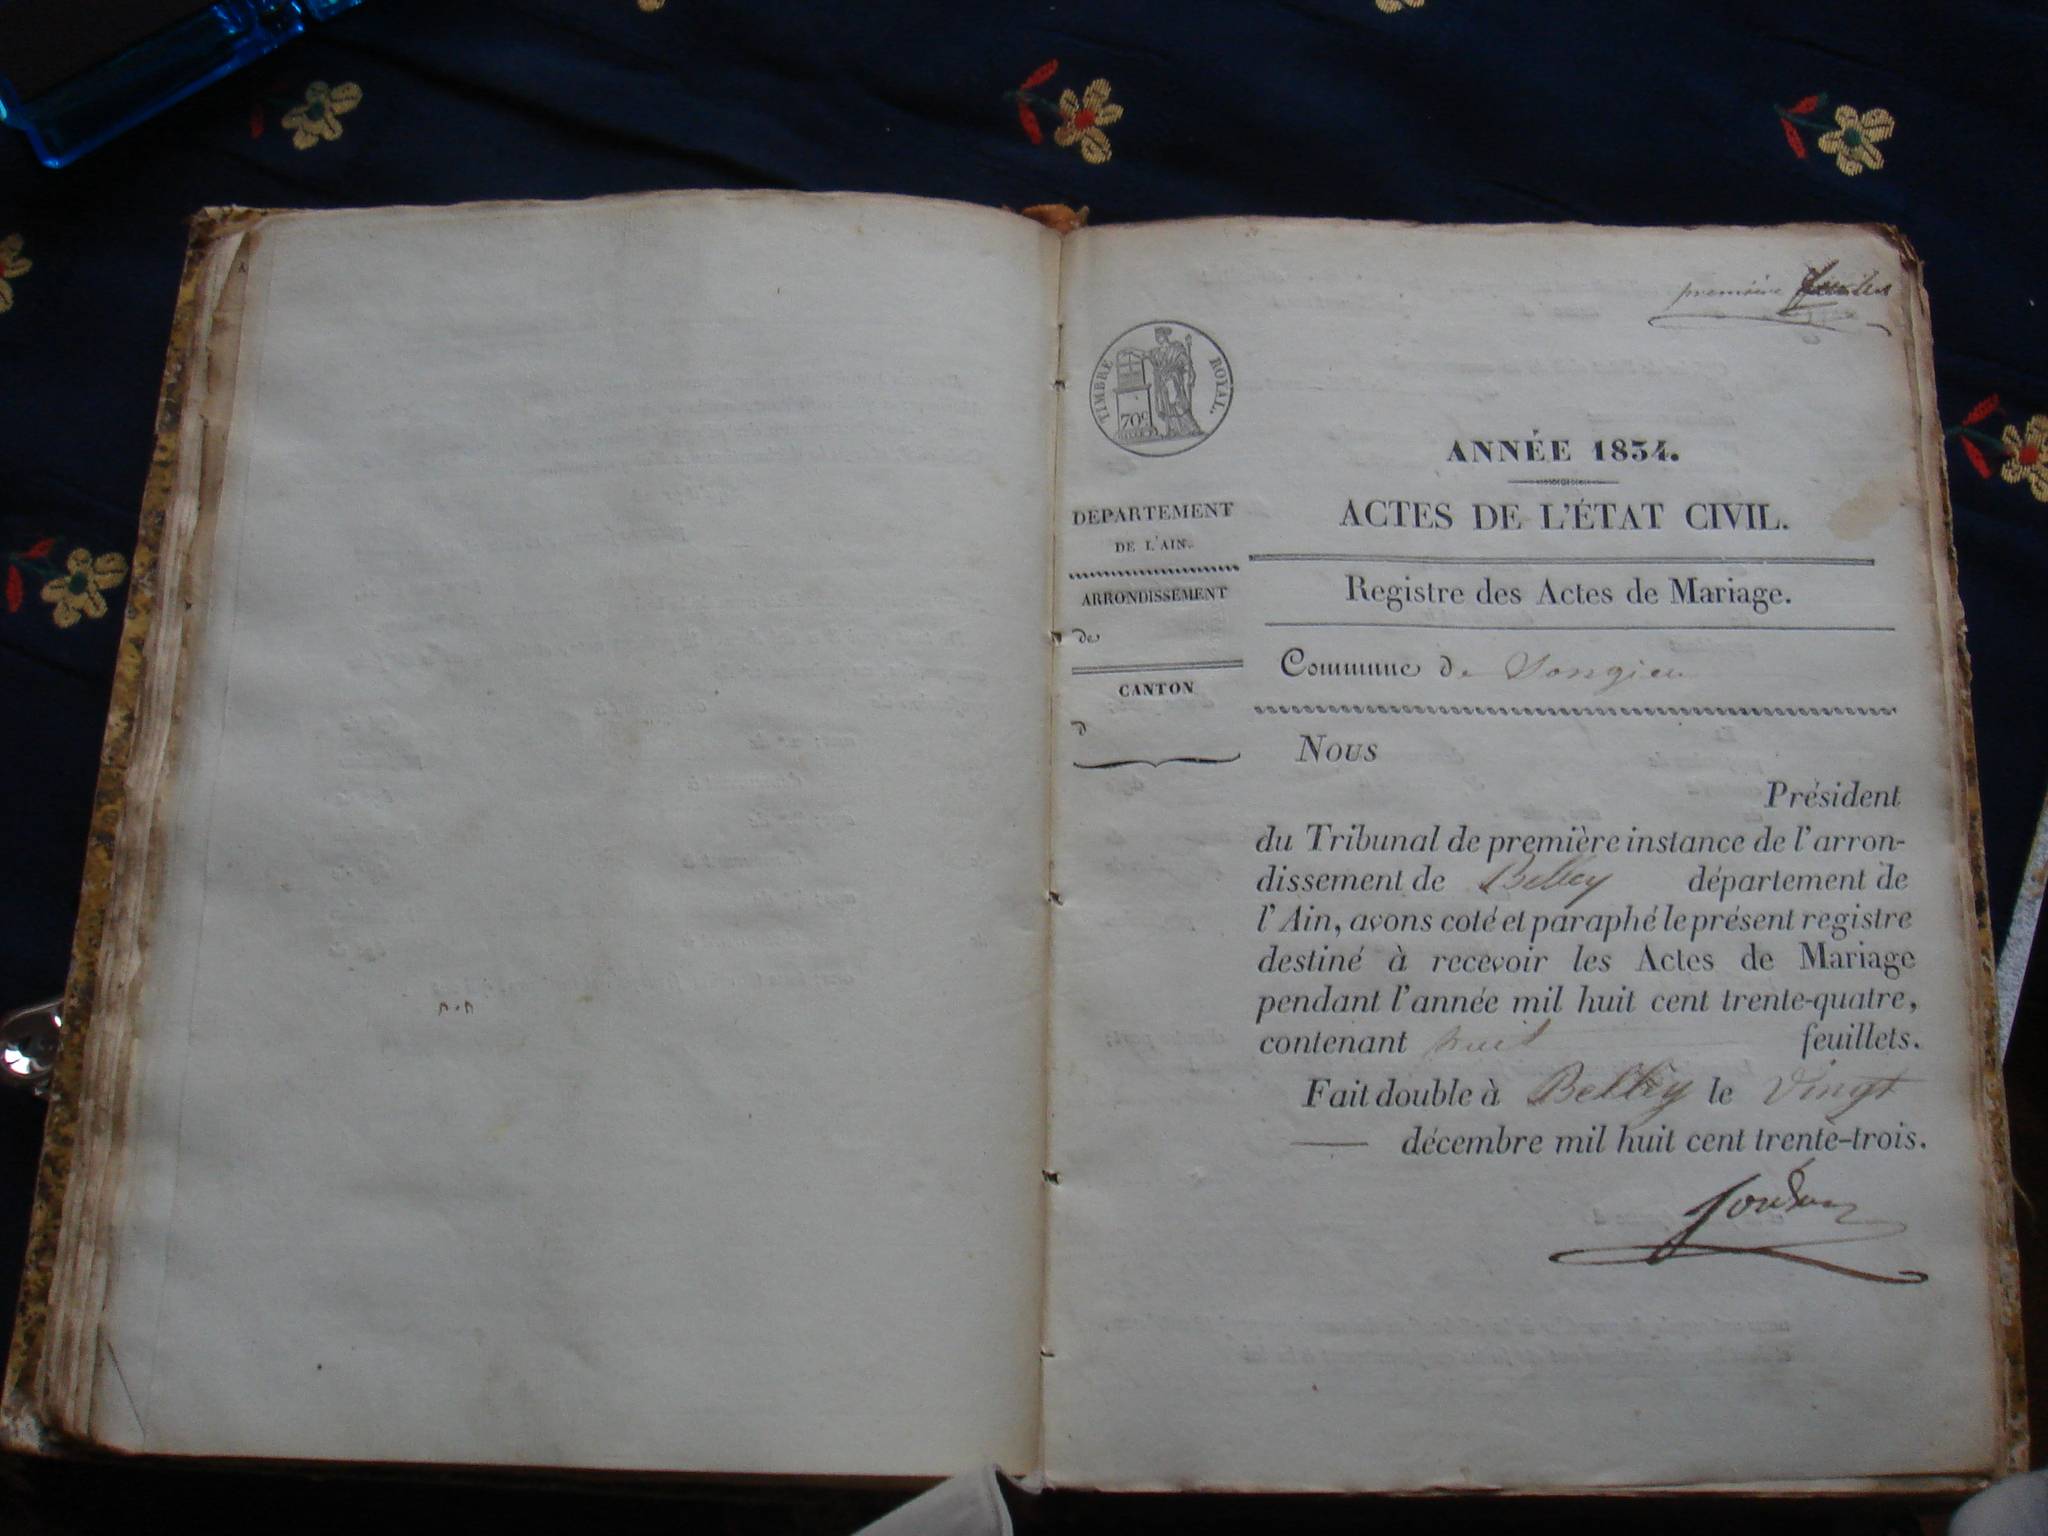 première feuillet
TIMBRE ROYAL.
70c
ANNÉE 1834.
ACTES DE L'ÉTAT CIVIL.
DÉPARTEMENT
DE L'AIN.
ARRONDISSEMENT
de
CANTON
d
Registre des Actes de Mariage.
Commune de Songieu
Nous
Président
du Tribunal de première instance de l'arron-
dissement de Belley département de
l'Ain, avons coté et paraphé le présent registre
destiné à recevoir les Actes de Mariage
pendant l'année mil huit cent trente-quatre,
contenant huit feuillets.
Fait double à Belley le vingt
décembre mil huit cent trente-trois.